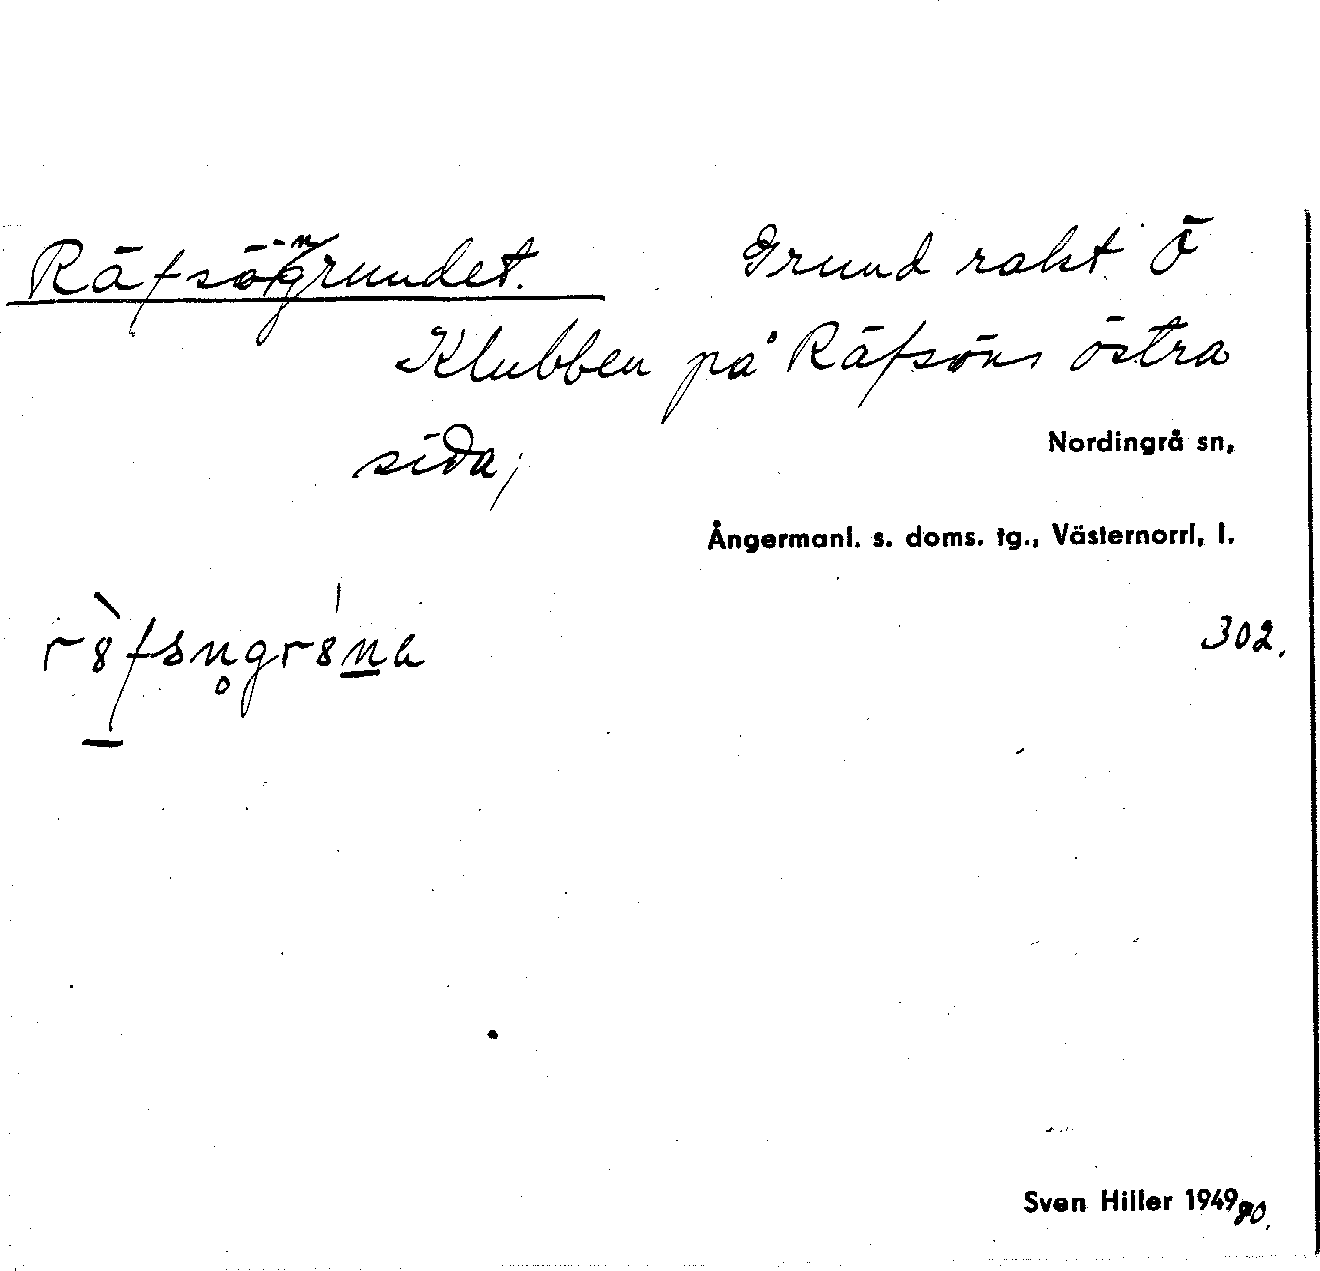 Räfsöngrundet. Grund rakt Ö
Klubben på Räfsöns östra
sida,
Nordingrå sn,
Ångermanl. s. doms. tg., Västernorrl. l.
302.
Sven Hiller 1949